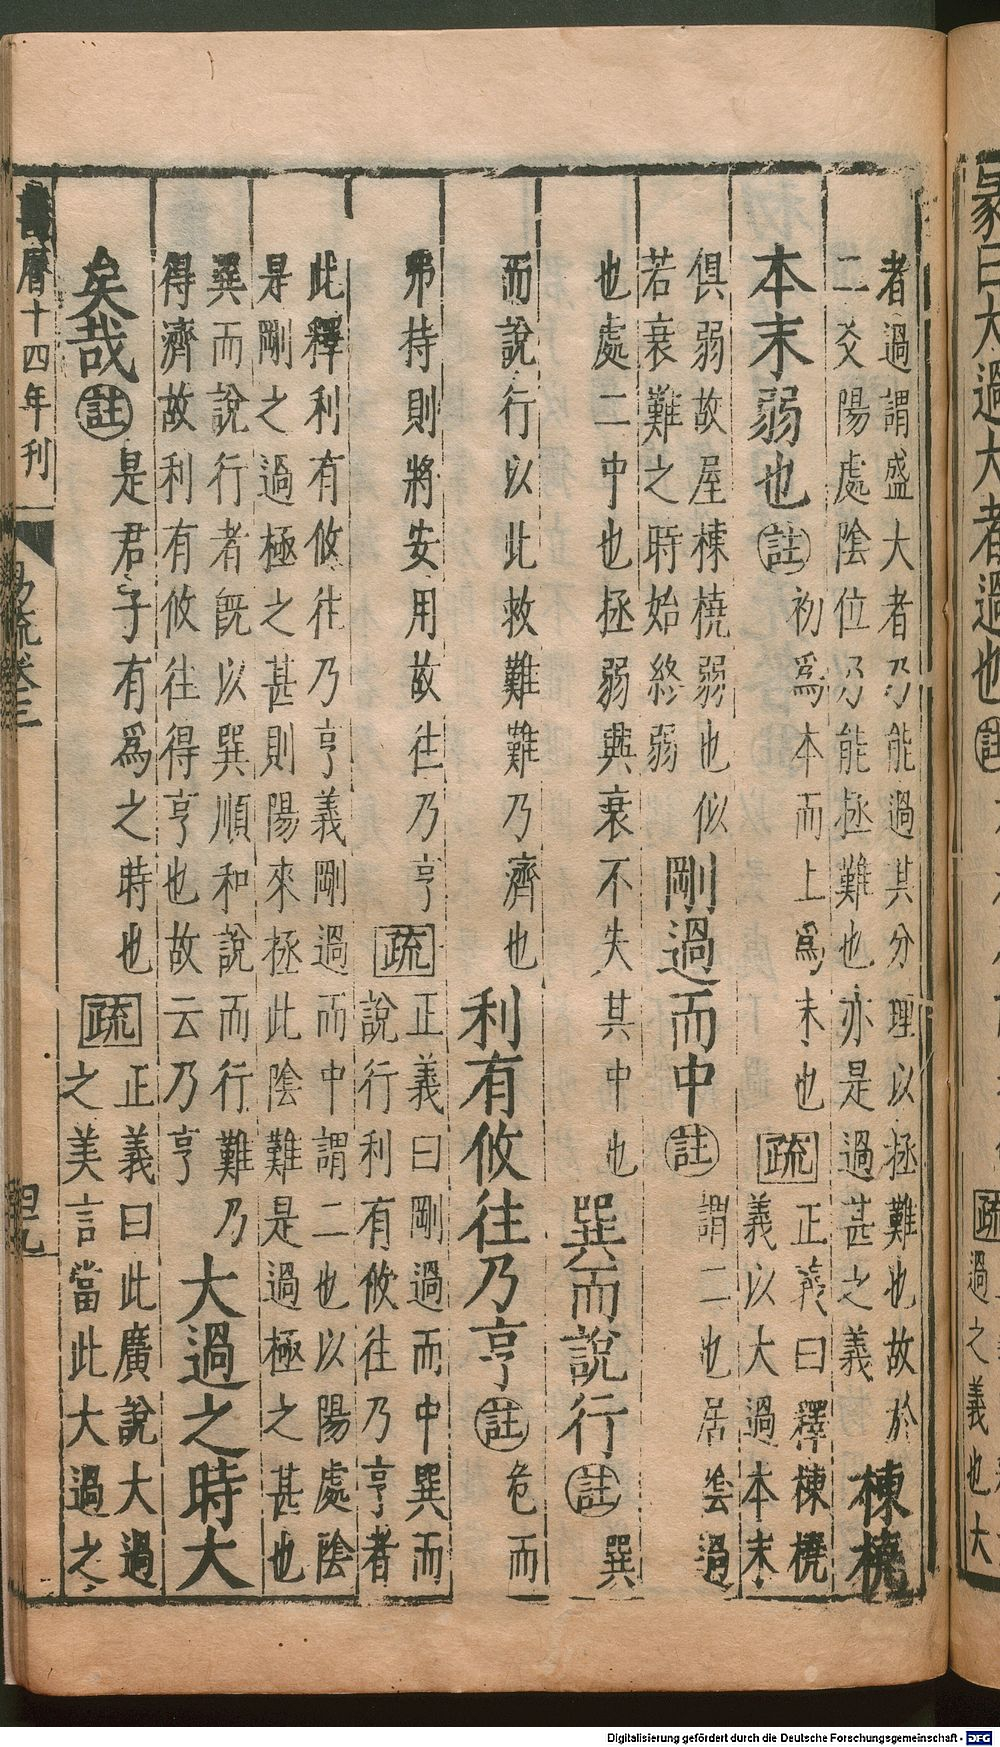 彖曰大過大者過也註
疏
過之義也大
者過謂盛大者乃能過其分理以拯難也故於
二爻陽處陰位乃能拯難也亦是過甚之義
棟橈
本末弱也註初爲本而上爲末也疏正義曰釋棟橈
義以大過本末
俱弱故屋棟橈弱也似
若衰難之時始終弱
剛過而中註謂二也居陰過
也處二中也拯弱興衰不失其中也巽而說行註巽
而說行以此救難難乃濟也利有攸往乃亨註危而
弗持則將安用故往乃亨疏正義曰剛過而中巽而
說行利有攸往乃亨者
此釋利有攸往乃亨義剛過而中謂二也以陽處陰
是剛之過極之甚則陽來拯此陰難是過極之甚也
巽而說行者旣以巽順和說而行難乃
得濟故利有攸往得亨也故云乃亨
大過之時大
矣哉註是君子有爲之時也疏正義曰此廣說大過
之美言當此大過之
曆十四年刊
易疏卷三
四九
Digitalisierung gefördert durch die Deutsche Forschungsgemeinschaft - DFG